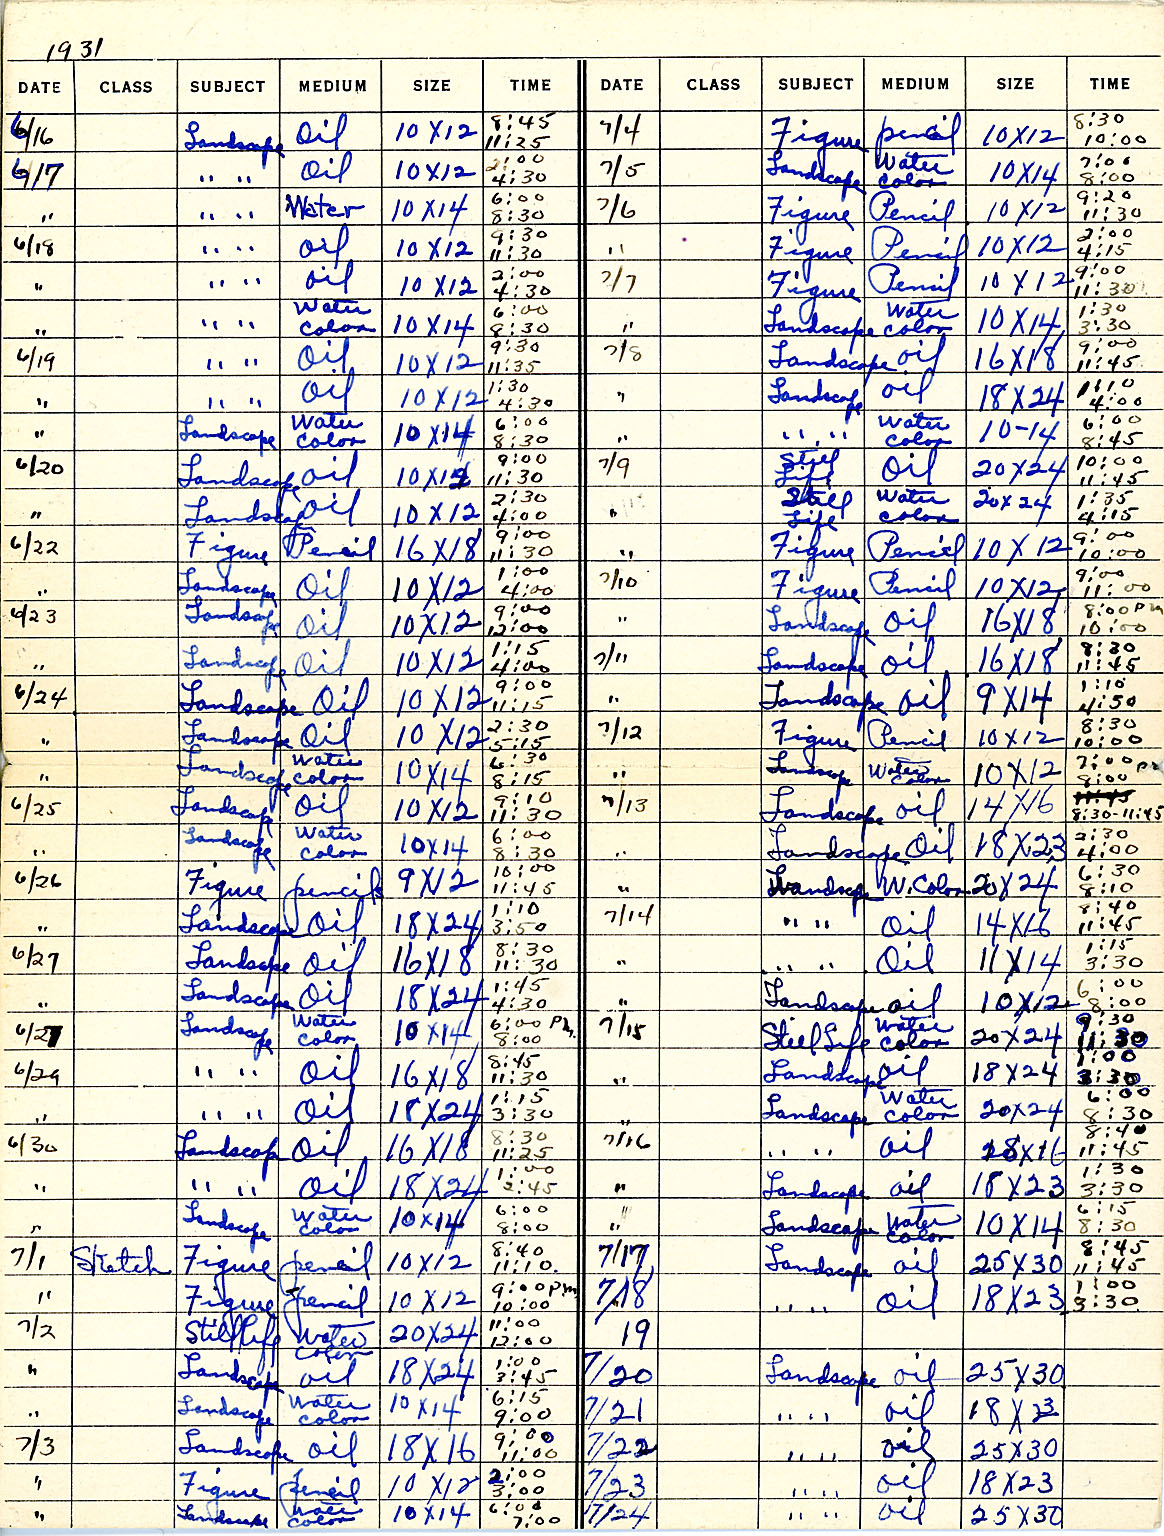 1931
DATE CLASS SUBJECT MEDIUM SIZE TIME
6/16 Landscape Oil 10X12 8:45 11:25
6/17 " " Oil 10X12 2:00 4:30
" " " Water 10X14 6:00 8:30
6/18 " " oil 10X12 9:30 11:30
" " " oil 10X12 2:00 4:30
" " " Water color 10X14 6:00 8:30
6/19 " " Oil 10X12 9:30 11:35
" " " Oil 10X12 1:30 4:30
" Landscape Water color 10X14 6:00 8:30
6/20 Landscape oil 10X12 9:00 11:30
" Landscape oil 10X12 2:30 4:00
6/22 Figure Pencil 16X18 9:00 11:30
" Landscape Oil 10X12 1:00 4:00
6/23 Landscape Oil 10X12 9:00 12:00
" Landscape Oil 10X12 1:15 4:00
6/24 Landscape Oil 10X12 9:00 11:15
" Landscape Oil 10X12 2:30 5:15
" Landscape Water color 10X14 6:30 8:15
6/25 Landscape Oil 10X12 9:10 11:30
" Landscape Water color 10X14 6:00 8:30
6/26 Figure pencil 9X12 10:00 11:45
" Landscape Oil 18X24 1:10 3:50
6/27 Landscape Oil 16X18 8:30 11:30
" Landscape Oil 18X24 1:45 4:30
6/27 Landscape Water color 10X14 6:00 Pm. 8:00
6/29 " " Oil 16X18 8:45 11:30
" " " Oil 18X24 1:15 3:30
6/30 Landscape Oil 16X18 8:30 11:25
" " " Oil 18X24 1:00 2:45
" Landscape Water color 10X14 6:00 8:00
7/1 Sketch Figure pencil 10X12 8:40 11:10.
" Figure pencil 10X12 9:00 Pm 10:00
7/2 Still life Water color 20X24 11:00 12:00
" Landscape oil 18X24 1:00 3:45
" Landscape Water color 10X14 6:15 9:00
7/3 Landscape oil 18X16 9:00 11:00
" Figure pencil 10X12 2:00 3:00
" Landscape Water color 10X14 6:00 7:00
DATE CLASS SUBJECT MEDIUM SIZE TIME
7/4 Figure pencil 10X12 8:30 10:00
7/5 Landscape Water color 10X14 7:00 8:00
7/6 Figure Pencil 10X12 9:20 11:30
" Figure Pencil 10X12 2:00 4:15
7/7 Figure Pencil 10X12 9:00 11:30
" Landscape Water color 10X14 1:30 3:30
7/8 Landscape oil 16X18 9:00 11:45
" Landscape oil 18X24 1:10 4:00
" " " Water color 10-14 6:00 8:45
7/9 Still Life Oil 20X24 10:00 11:45
" Still Life Water color 20X24 1:35 4:15
" Figure Pencil 10X12 9:00 10:00
7/10 Figure Pencil 10X12 9:00 11:00
" Landscape Oil 16X18 8:00 Pm 10:00
7/11 Landscape oil 16X18 8:30 11:45
" Landscape oil 9X14 1:10 4:50
7/12 Figure Pencil 10X12 8:30 10:00
" Landscape Water Color 10X12 7:00 pm 8:00
7/13 Landscape oil 14X16 8:30-11:45
" Landscape Oil 18X23 2:30 4:00
" Landscape W. Color 20X24 6:30 8:10
7/14 " " Oil 14X16 8:40 11:45
" " " Oil 11X14 1:15 3:30
" Landscape oil 10X12 6:00 8:00
7/15 Still Life Water Color 20X24 9:30 11:30
" Landscape oil 18X24 1:00 3:30
" Landscape Water color 20X24 6:00 8:30
7/16 " " oil X16 8:40 11:45
" Landscape oil 18X23 1:30 3:30
" Landscape Water color 10X14 6:15 8:30
7/17 Landscape oil 25X30 8:45 11:45
7/18 " " Oil 18X23 1:00 3:30
19
7/20 Landscape oil 25X30
7/21 " " oil 18X23
7/22 " " oil 25X30
7/23 " " oil 18X23
7/24 " " oil 25X30